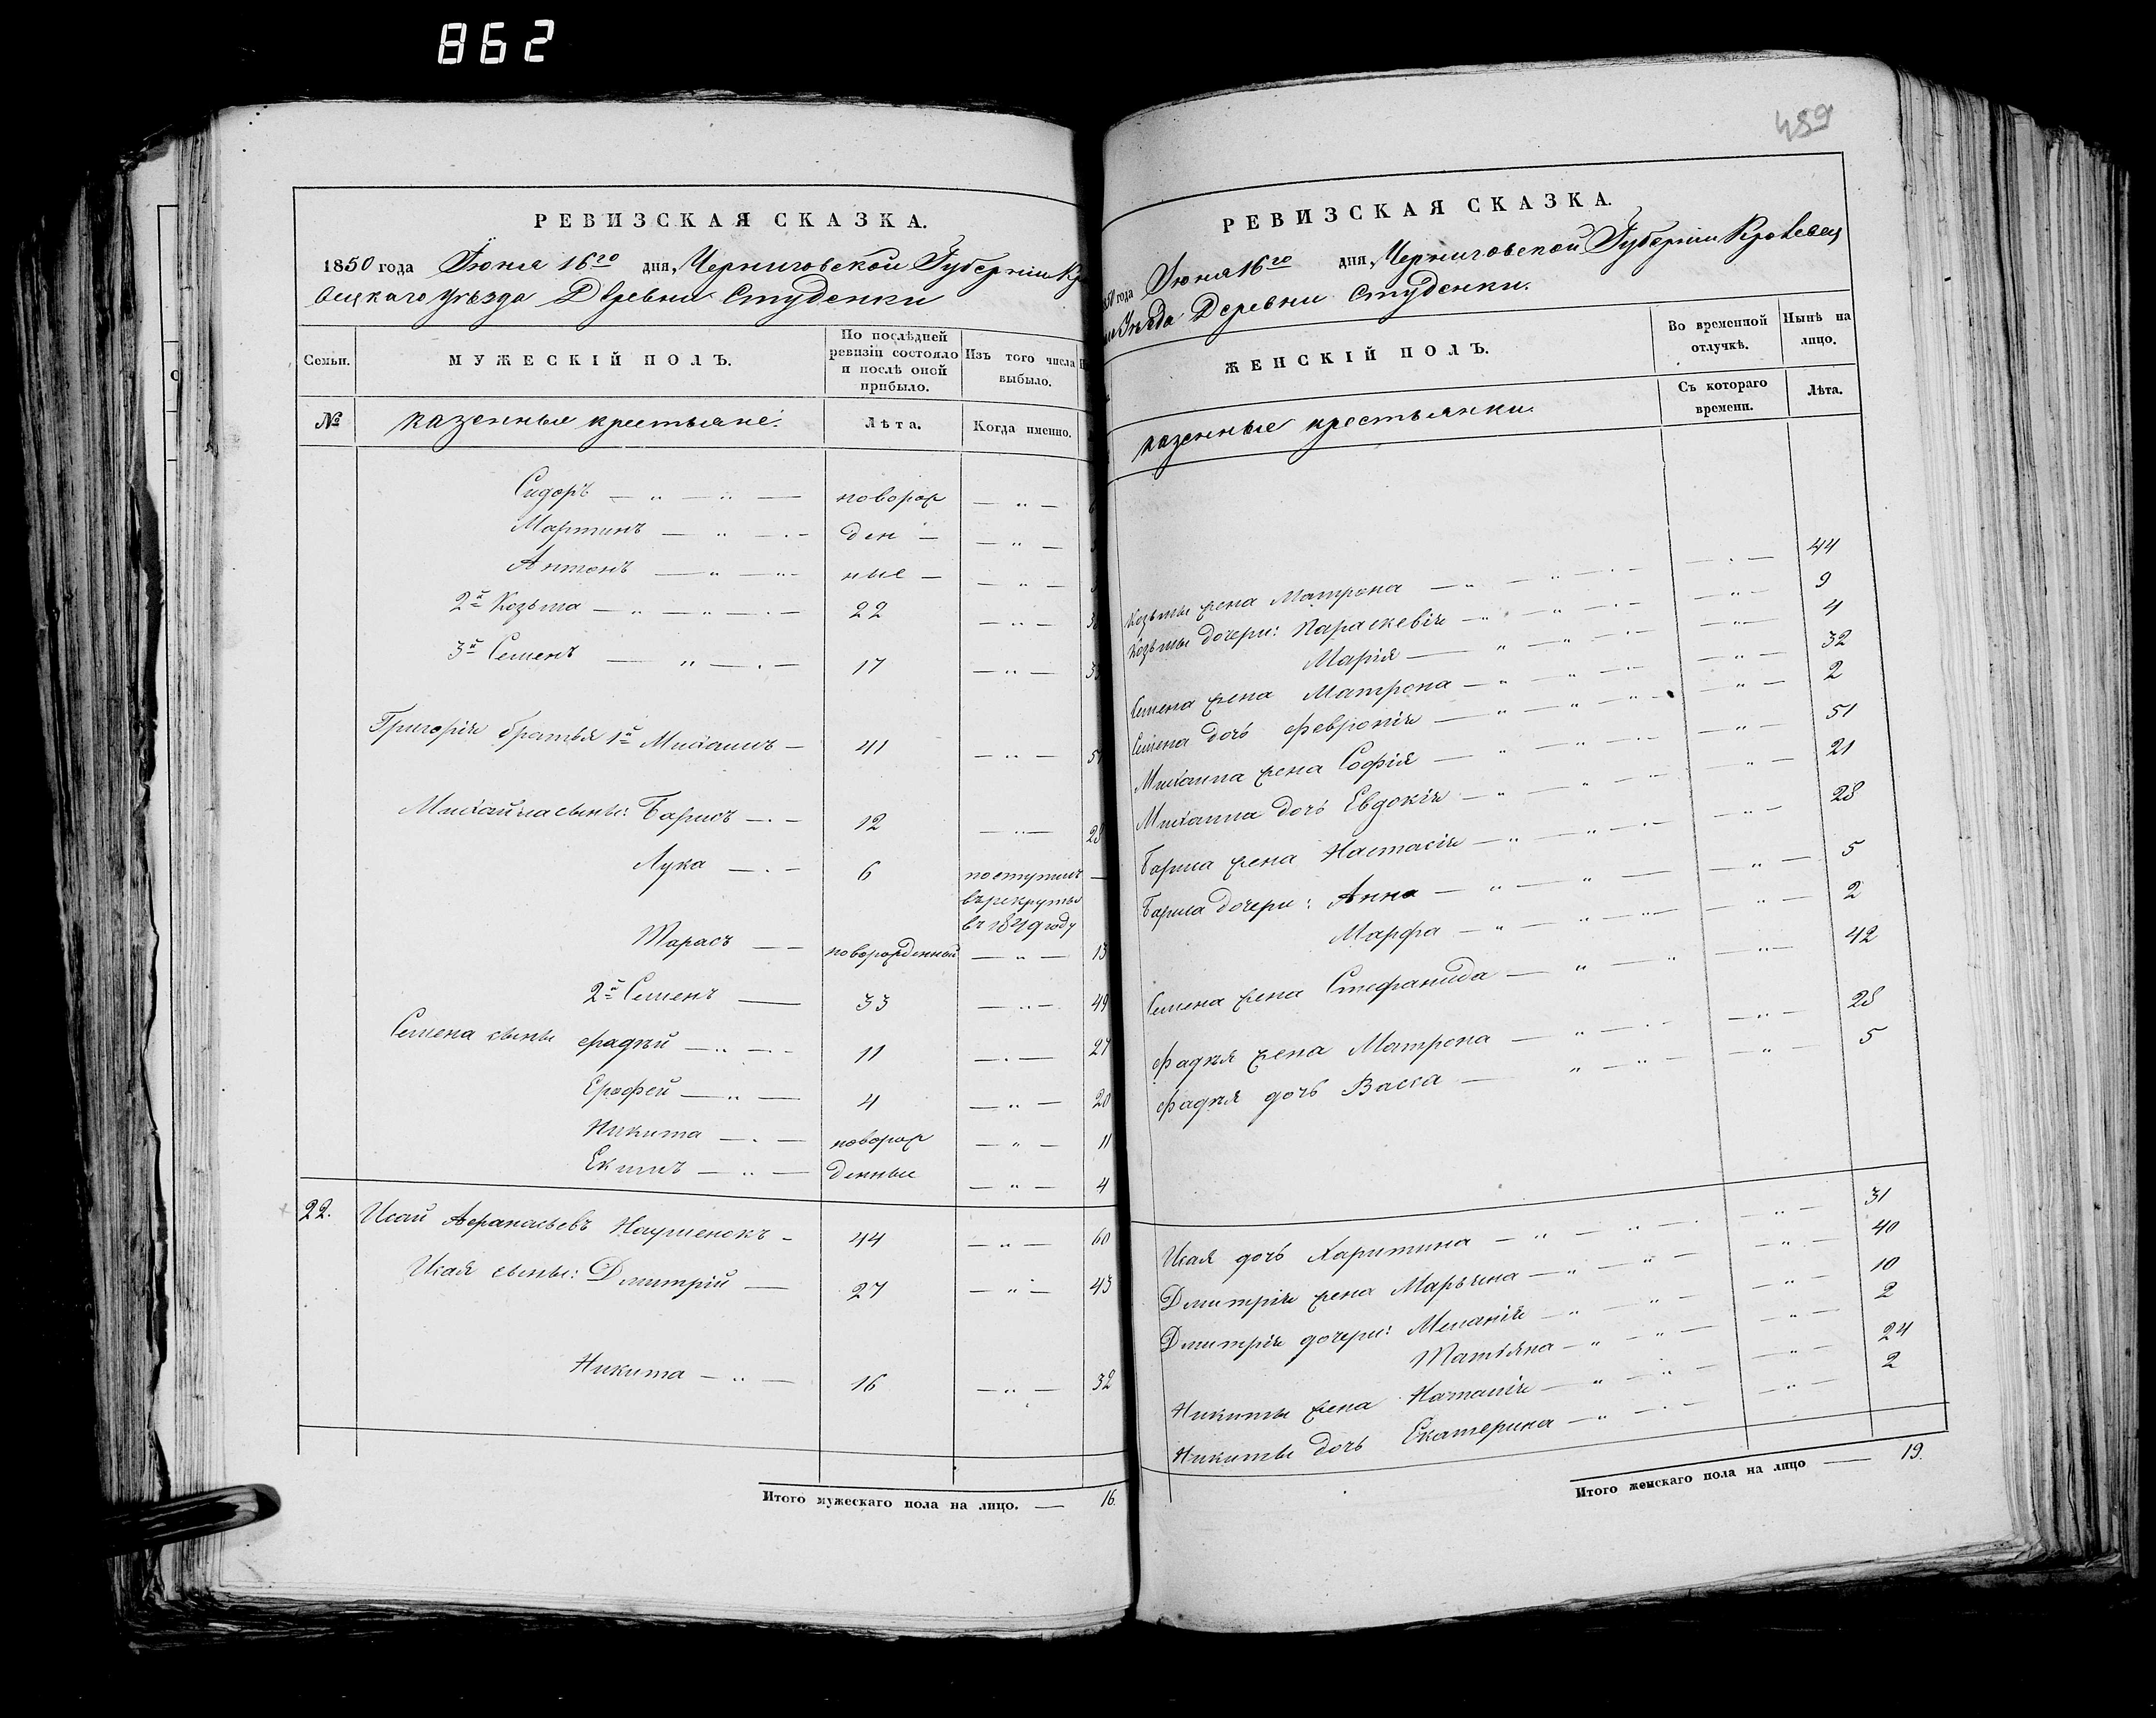 862
РЕВИЗСКАЯ СКАЗКА.
1850 года Іюня 16го дня, Черниговской Губерніи Кр
вецкаго уѣзда Деревни Студенки
Семьи.
МУЖЕСКІЙ ПОЛЪ.
По послѣдней
ревизіи состояло
и послѣ оной
прибыло.
Изъ того числа
выбыло.
№
казенные крестьяне.
Лѣта.
Когда именно.
Сидоръ — " — " — новорож — " —
Мартинъ — " — " — ден — — " —
Антонъ — " — " — ные — — " —
2й Козьма — " — " — 22 — " — 3
3й Семенъ — " — " — 17 — " — 3
Григорія братья 1й Михаилъ — 41 — " — 5
Михайла сыны: Барисъ — " — 12 — " — 28
Лука — " — 6 поступилъ —
въ рекруты
въ 1849 году
Тарасъ — — новорожденный — " — 15
2й Семенъ — 33 — " — 49
Семена сыны Фадѣй — " — " — 11 — " — 27
Ерофей — " — 4 — " — 20
Никита — " — новорож — " — 11
Екимъ — " — денные — " — 4
22. Исай Афанасьевъ Наушенокъ — 44 — " — 60
Исая сыны: Дмитрій — 27 — " — 43
Никита — " — 16 — " — 32
Итого мужескаго пола на лицо. — 16.
459
РЕВИЗСКАЯ СКАЗКА.
850 года Іюня 16го дня, Черниговской Губерніи Кролевец
Уѣзда Деревни Студенки.
ЖЕНСКІЙ ПОЛЪ.
Во временной
отлучкѣ.
Нынѣ на
лицо.
казенные крестьянки.
Съ котораго
времени.
Лѣта.
Козьмы жена Матрона — " — " — — " — 44
Козьмы дочери: Параскевія — " — " — — " — 9
Марія — " — " — — " — 4
Семена жена Матрона — " — " — — " — 32
Семена дочь Февронія — " — " — — " — 2
Михаила жена Софія — " — " — — " — 51
Михаила дочь Евдокія — " — " — — " — 21
Бариса жена Настасія — " — " — — " — 28
Бариса дочери: Анна — " — " — — " — 5
Марфа — " — " — — " — 2
Семена жена Стефанида — " — " — — " — 42
Фадѣя жена Матрона — " — " — — " — 28
Фадѣя дочь Васса — " — " — — " — 5
Исая дочь Харитина — " — " — — " — 31
Дмитрія жена Марьяна — " — " — — " — 40
Дмитрія дочери: Меланія — " — " — — " — 10
Татіяна — " — " — — " — 2
Никиты жена Наталія — " — " — — " — 24
Никиты дочь Екатерина — " — " — — " — 2
Итого женскаго пола на лицо — 19.